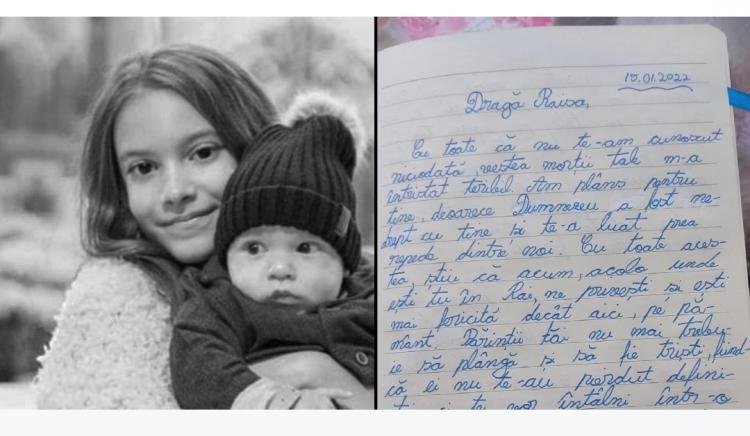 15.01.2022
Dragă Raisa,
Cu toate că nu te-am cunoscut
niciodată, vestea morții tale m-a
întristat teribil. Am plâns pentru
tine, deoarece Dumnezeu a fost ne-
drept cu tine și te-a luat prea
repede dintre noi. Cu toate aces-
tea, știu că acum, acolo unde
ești tu în Rai, ne privești și ești
mai fericită decât aici, pe pă-
mânt. Părinții tăi nu mai trebu-
ie să plângă și să fie triști, fiind-
că ei nu te-au pierdut defini-
tiv și te vor întâlni într-o